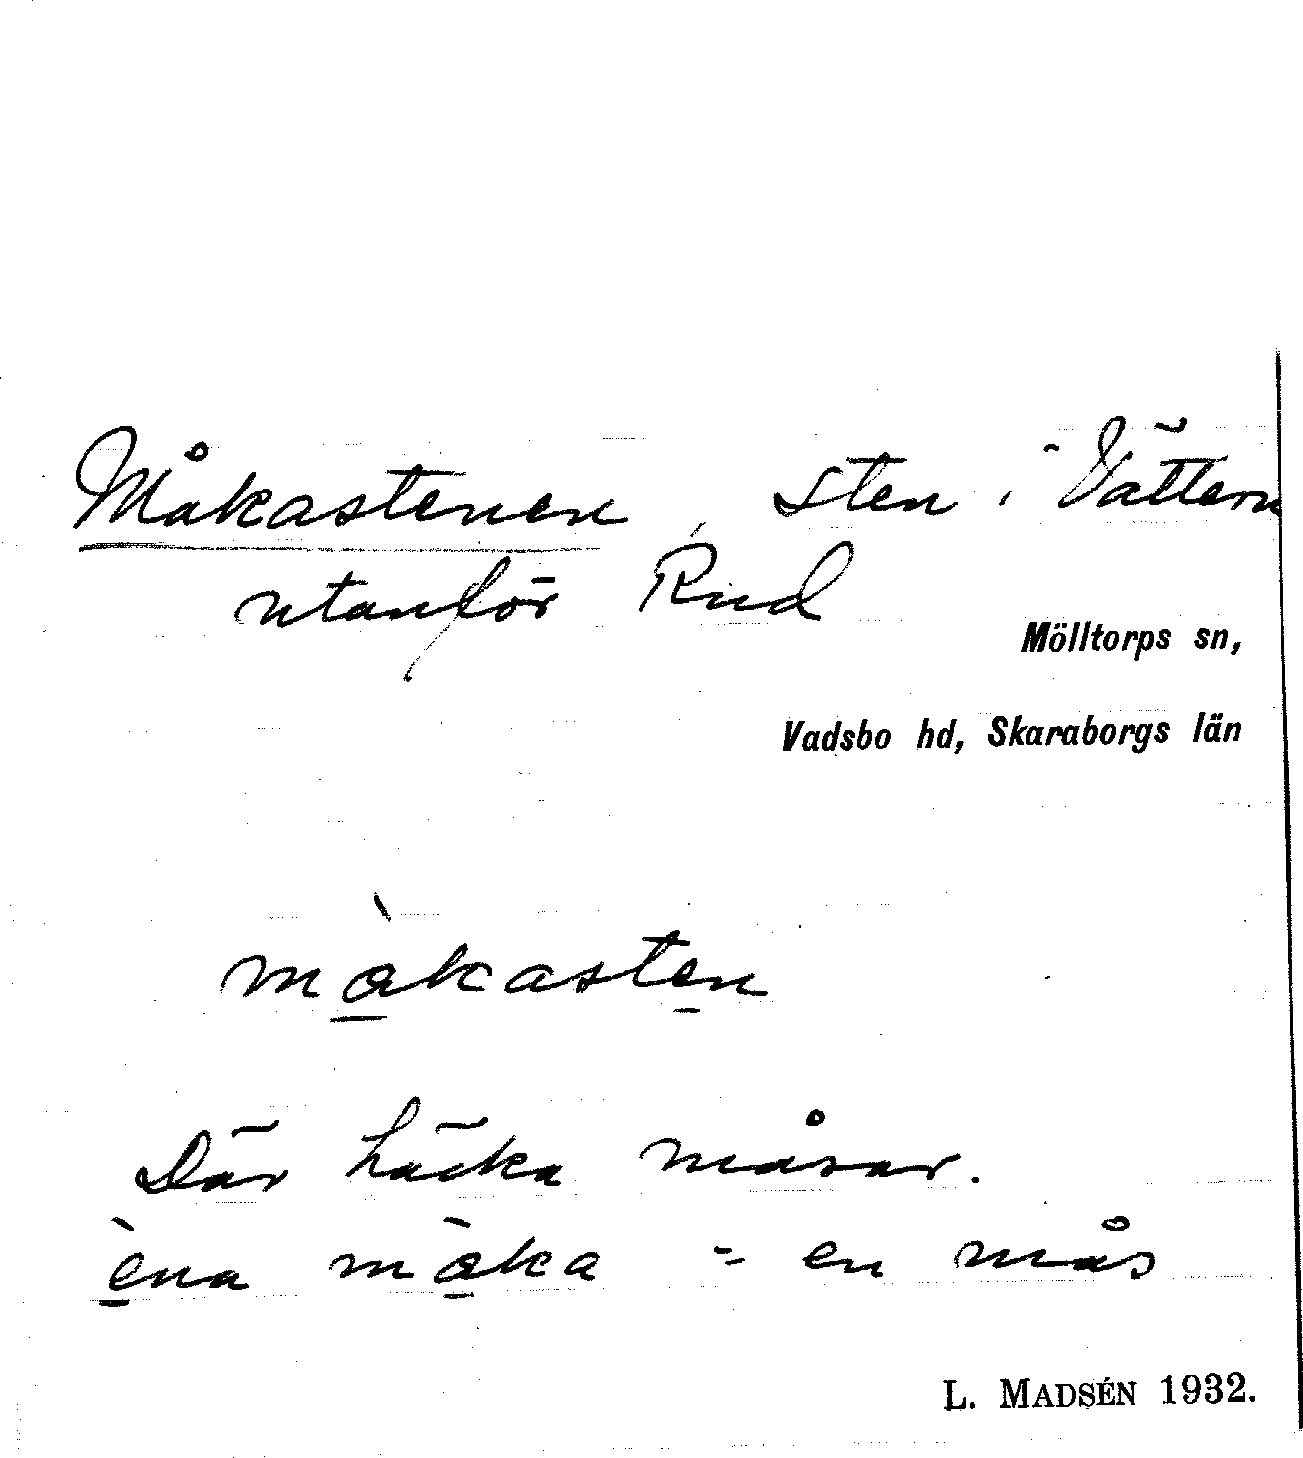 Måkastenen, sten i Vättern
utanför Rud
Mölltorps sn,
Vadsbo hd, Skaraborgs län
mɑ̀kasten
Där häcka måsar.
èna mɑ̀ka = en mås
L. MADSÉN 1932.